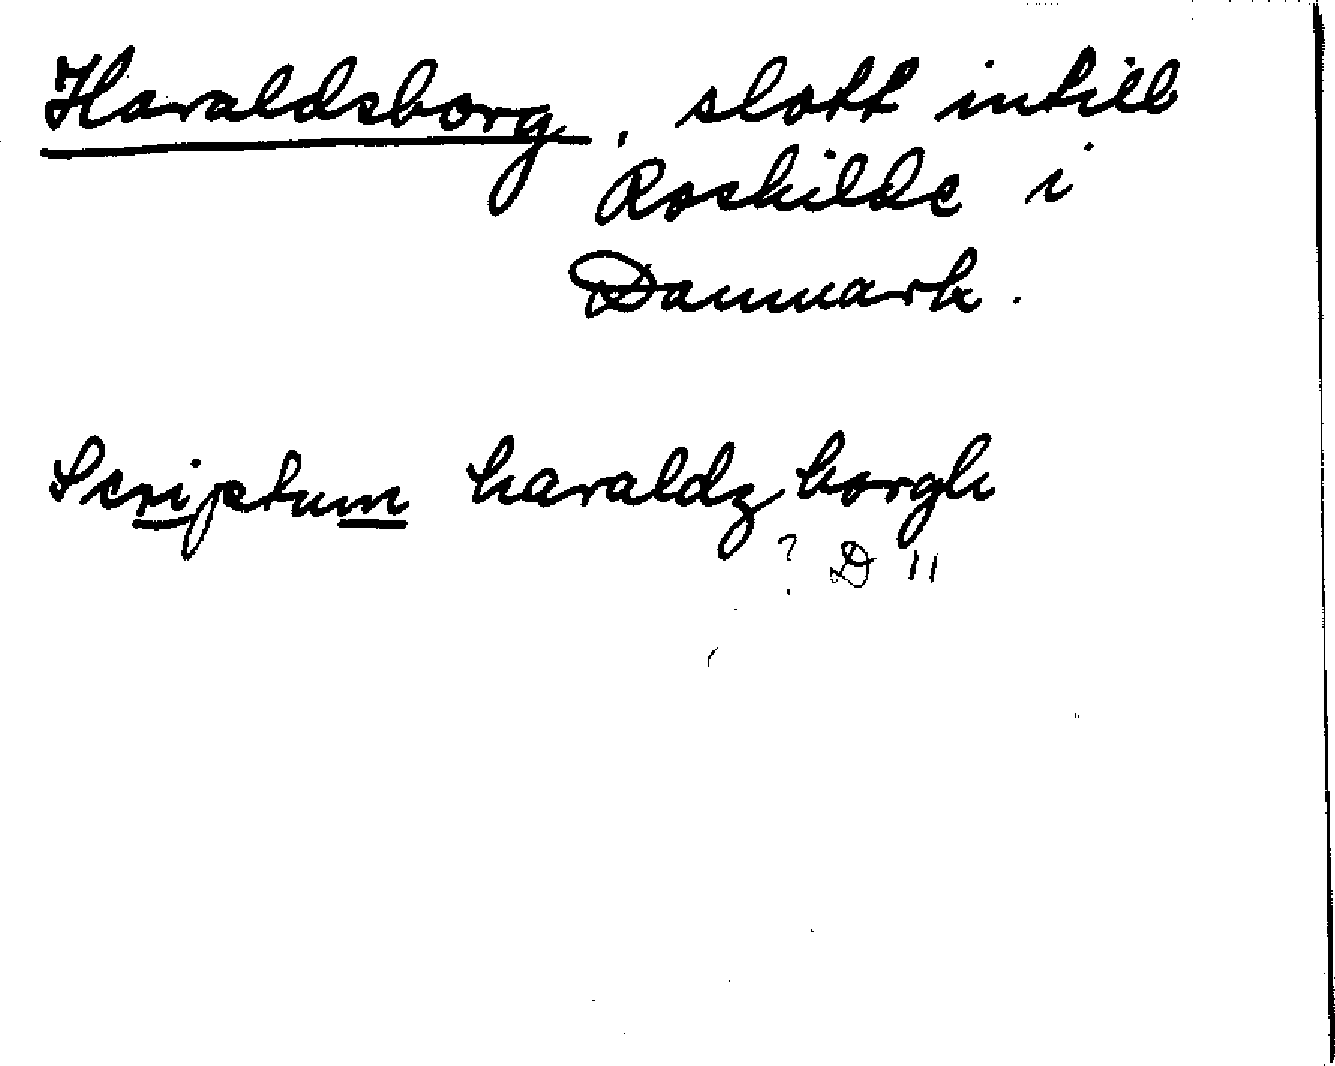 Haraldsborg, slott intill
Roskilde i
Danmark.
Scriptum haraldzborgh
? D 11